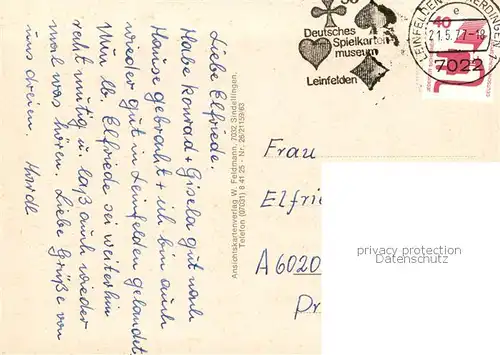 Liebe Elfriede.
Habe Konrad + Gisela gut nach
Hause gebracht + ich bin auch
wieder gut in Leinfelden gelandet.
Nun lb. Elfriede sei weiterhin
recht mutig u. laß auch wieder
mal was hören. Liebe Grüße von
uns dreien.
Ansichtskartenverlag W. Feldmann, 7032 Sindelfingen,
Telefon (07031) 8 41 25 - Nr. 26/21159/63
Deutsches
Spielkarten
museum
Leinfelden
LEINFELDEN-ECHTERDINGEN 1
e
21.5.77-18
7022
40
Frau
Elfrie
A6020
privacy protection
for Datenschutz